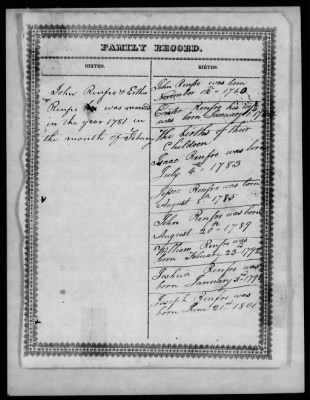 FAMILY RECORD.
BIRTHS.
John Renfro & Esther
Renfro was married
in the year 1781 in
the month of Febury
BIRTHS.
John Renfro was born
November 12th 1760
Esther Renfro his wife
was born January
The births of their
Children
Isaac Renfro was born
July 4th 1783
Renfro was born
August 8th 1785
John Renfro was born
August 20th 1789
William Renfro was
born February 23rd 1792
Joshua Renfro was
born January 3rd
Joseph Renfro was
born June 21st 1801